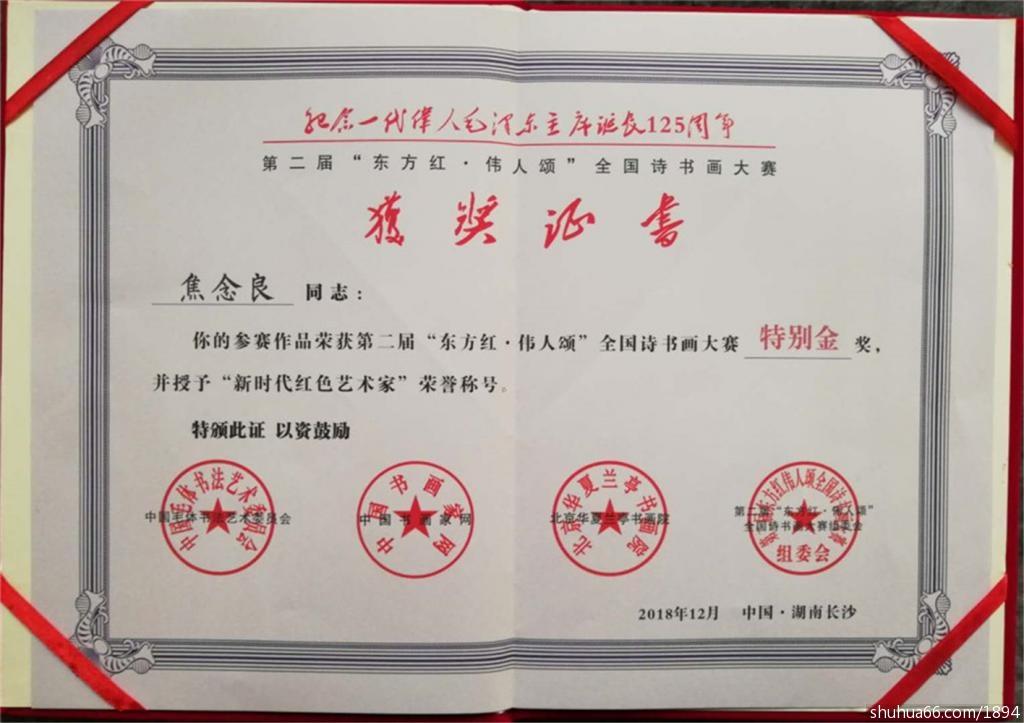 纪念一代偉人毛泽东主席诞辰125周年
第二届“东方红·伟人颂”全国诗书画大赛
獲奖证書
焦念良 同志：
你的参赛作品荣获第二届“东方红·伟人颂”全国诗书画大赛 特别金 奖，
并授予“新时代红色艺术家”荣誉称号。
特颁此证 以资鼓励
中国毛体书法艺术委员会
中国毛体书法艺术委员会
中国书画家网
中国书画家网
北京华夏兰亭书画院
北京华夏兰亭书画院
第二届“东方红·伟人颂”
全国诗书画大赛组委会
组委会
2018年12月 中国·湖南长沙
shuhua66.com/1894